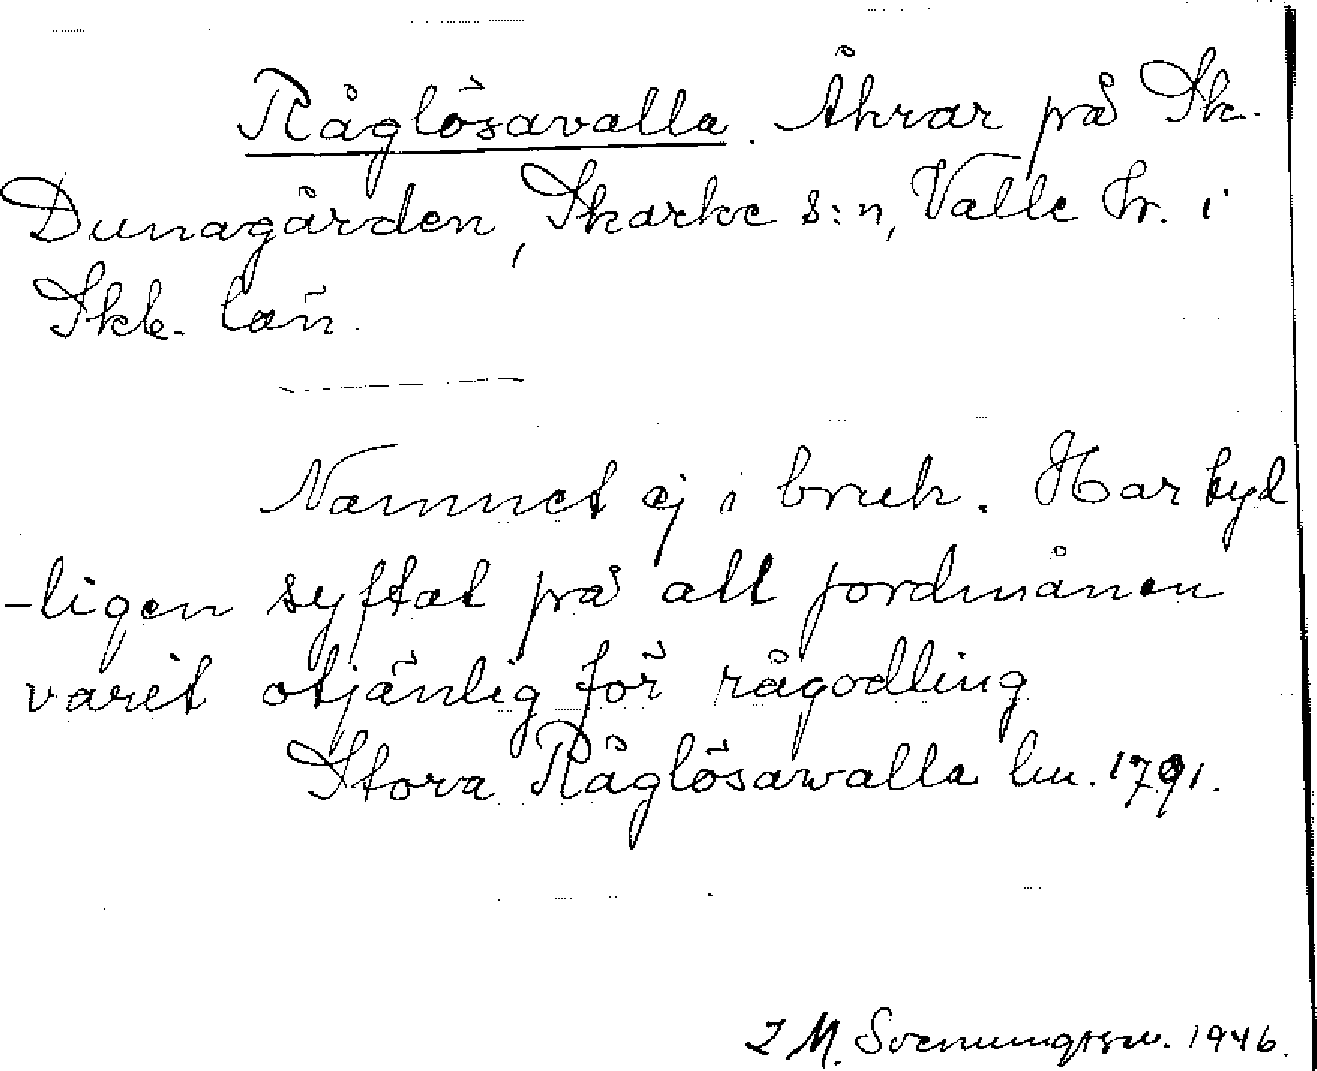 Råglösavalla. Åkrar på Sk.
Dunagården, Skarke s:n, Valle hr. i
Skb. län.
Namnet ej i bruk. Har tyd
-ligen syftat på att jordmånen
varit otjänlig för rågodling
Stora Råglösawalla lm. 1791.
I M. Svenungsson. 1946.